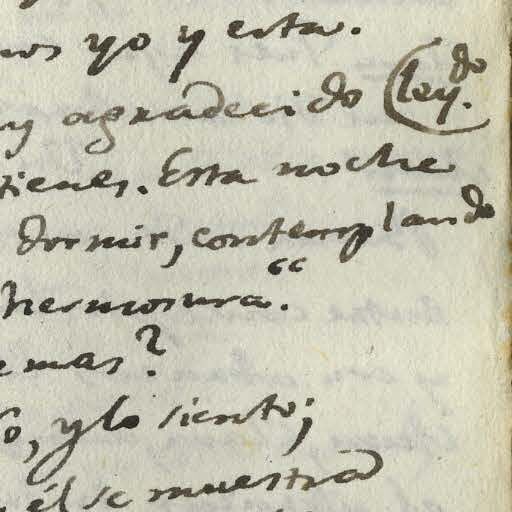 nos yo y esta.
y agradecido (ley.do
tienes. Esta noche
dormir, contemplando
hermosura."
emas?
ó, y lo siento;
él se muestra